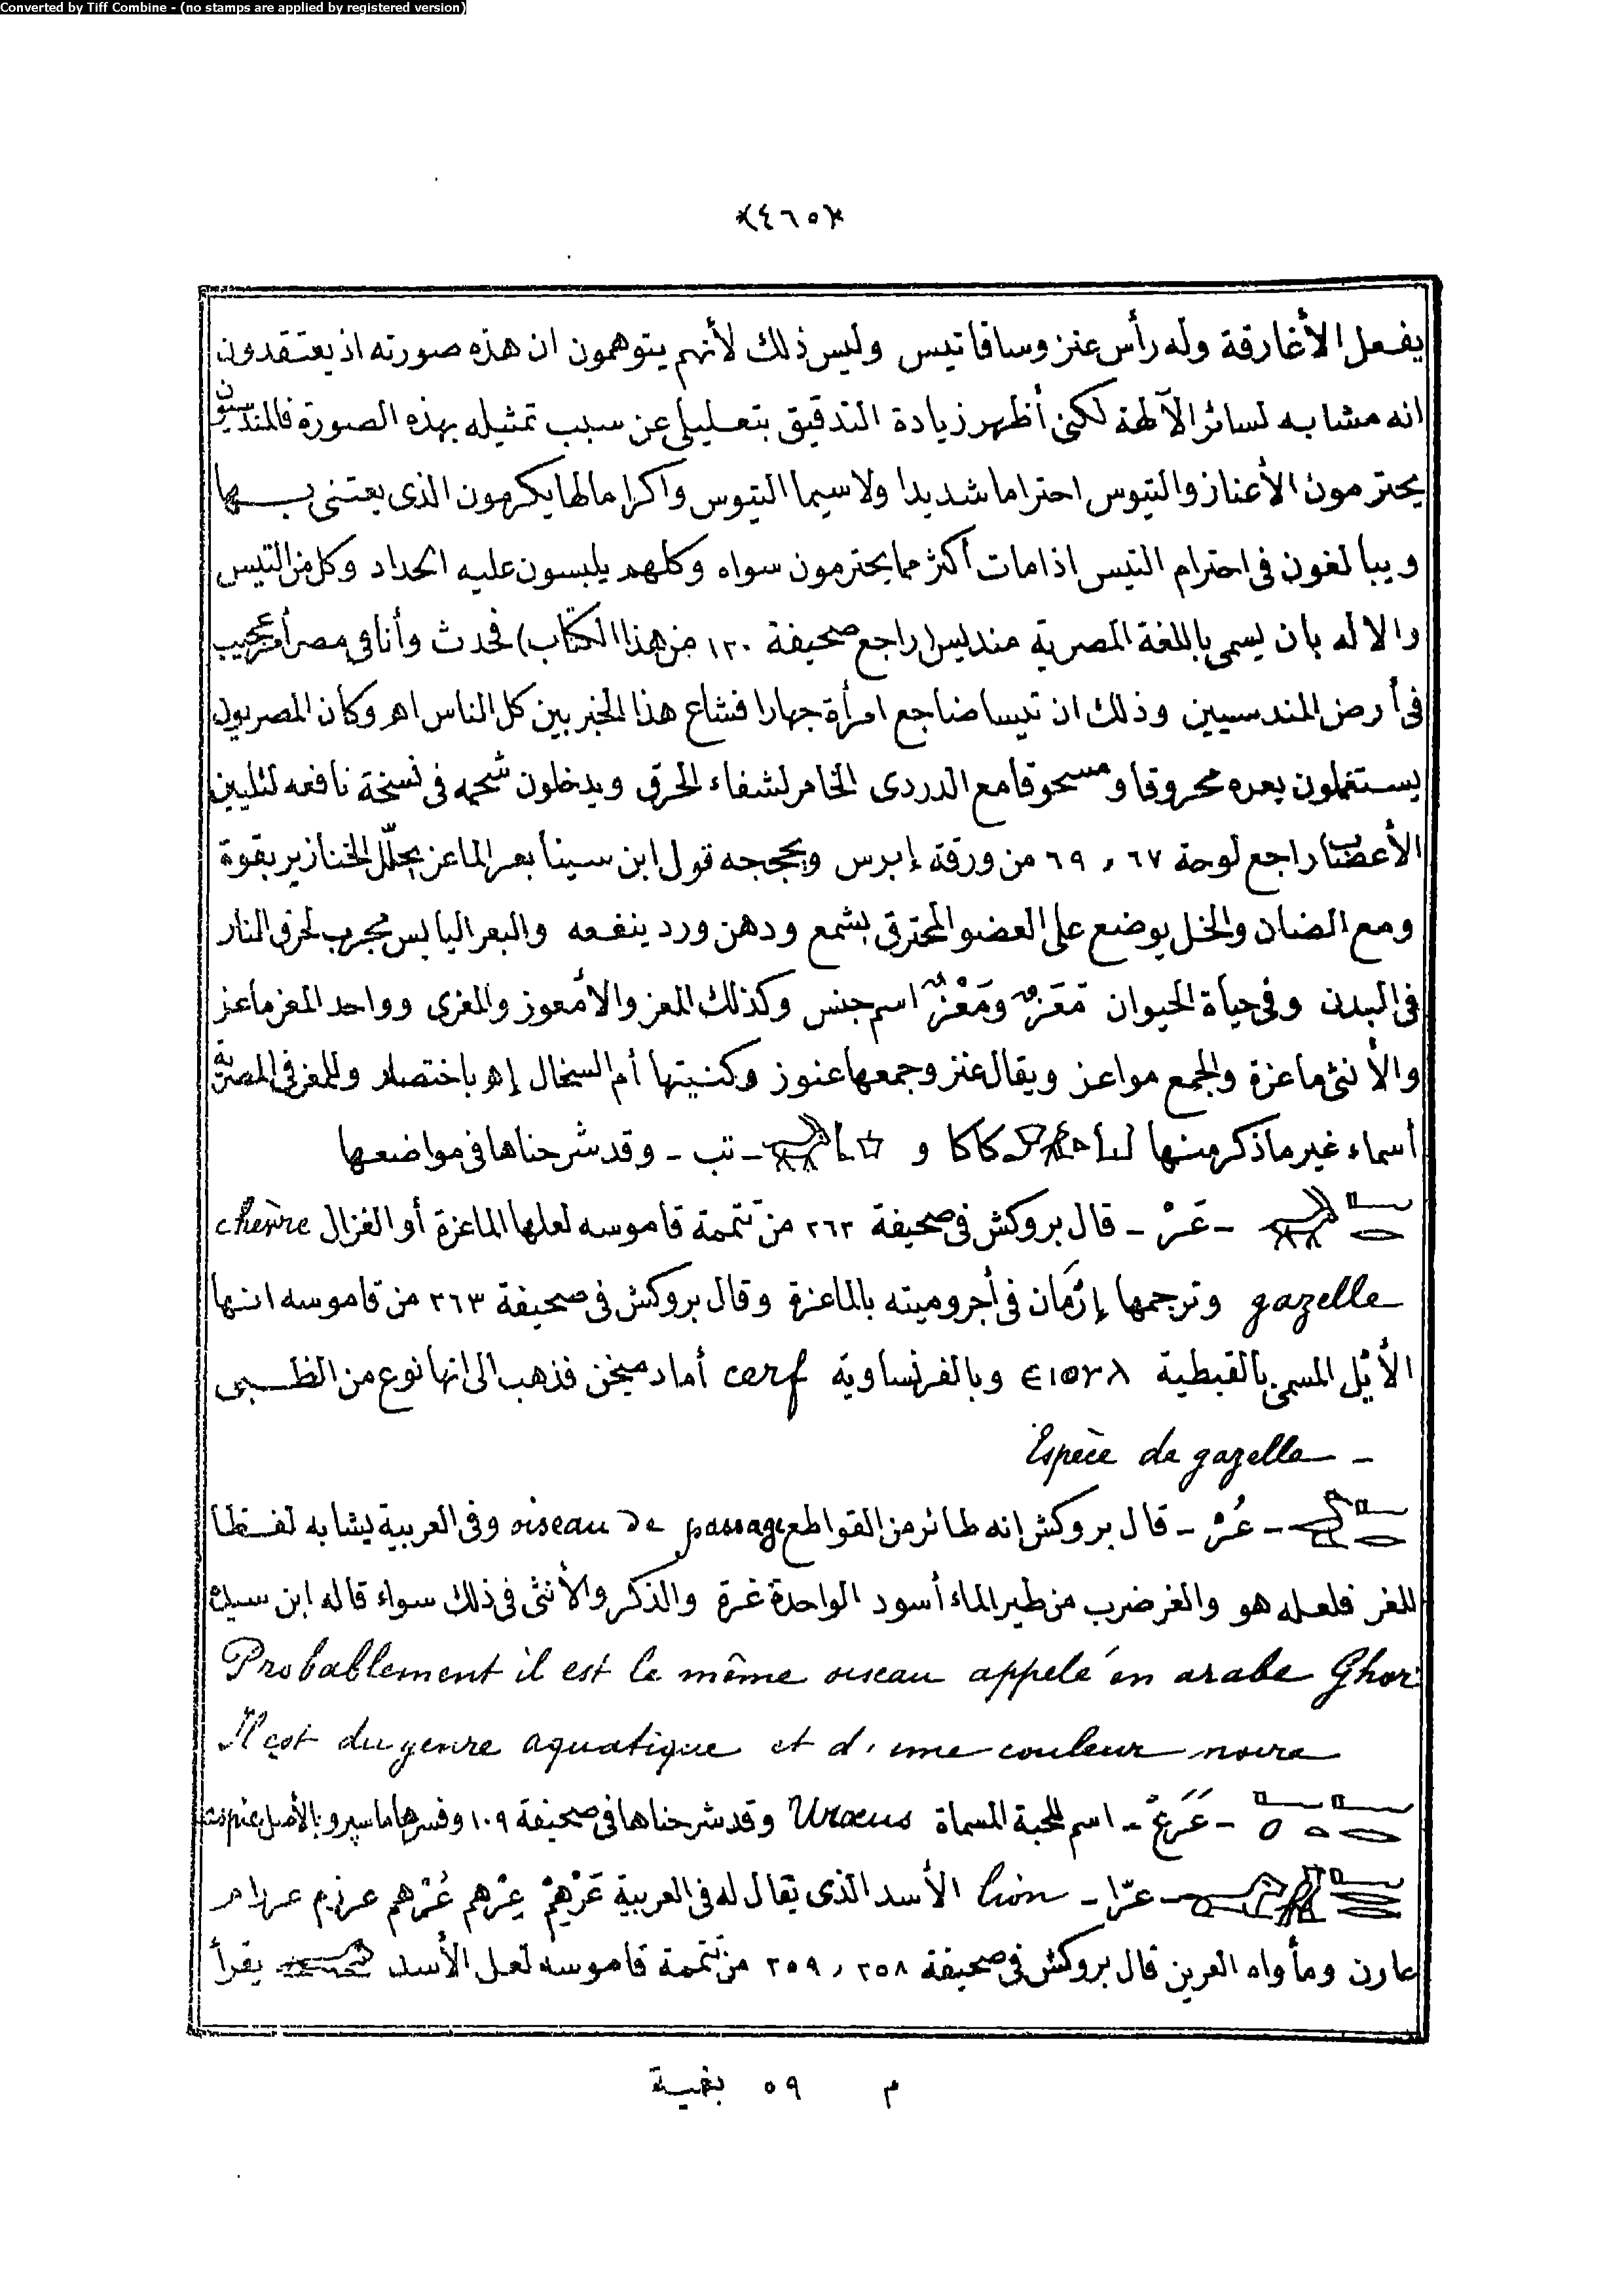 Converted by Tiff Combine - (no stamps are applied by registered version)
*(٤٦٥)*
يفعل الأغارقة وله رأس عنز وساقا تيس وليس ذلك لأنهم يتوهمون ان هذه صورته اذ يعتقدون
انه مشابه لسائر الآلهة لكنى أظهر زيادة التدقيق بتعليلى عن سبب تمثيله بهذه الصورة فالمندسيون
يحترمون الأعناز والتيوس احتراما شديدا ولا سيما التيوس واكراما لها يكرمون الذى يعتنى بها
ويبالغون فى احترام التيس اذا مات أكثر مما يحترمون سواه وكلهم يلبسون عليه الحداد وكل من التيس
والاله بان يسمى باللغة المصرية منديس (راجع صحيفة ١٢٠ من هذا الكتاب) فحدث وأنا فى مصر أمر عجيب
فى أرض المندسيين وذلك ان تيسا ضاجع امرأة جهارا فشاع هذا الخبر بين كل الناس اهـ وكان المصريون
يستعملون بعره محروقا ومسحوقا مع الدردى الخامر لشفاء الحرق ويدخلون شحمه فى نسخة نافعه لتليين
الأعصاب راجع لوحة ٦٧ ، ٦٩ من ورقة إبرس وبحججه قول ابن سينا بعر الماعز يحلّل الخنازير بقوة
ومع الضان والخل يوضع على العضو المحترق بشمع ودهن ورد ينفعه والبعر اليابس مجرب لحرق النار
فى البدن وفى حياة الحيوان مَعَزٌ ومَعْزٌ اسم جنس وكذلك المعز والأمعوز والمعزى وواحد المعز ماعز
والأنثى ماعزة والجمع مواعز ويقال عنز وجمعها عنوز وكنيتها أم السخال إهـ باختصار وللمعز فى المصرية
أسماء غير ما ذكر منها كاكا و - تب - وقد شرحناها فى مواضعها
- عَرْ - قال بروكش فى صحيفة ٢٦٢ من تتمة قاموسه لعلها الماعزة أو الغزال chèvre
gazelle وترجمها إرْمَان فى أجروميته بالماعزة وقال بروكش فى صحيفة ٢٦٣ من قاموسه انها
الأيّل المسمى بالقبطية ⲉⲓⲟⲩⲗ وبالفرنساوية cerf أما دميخن فذهب الى انها نوع من الظبى
Espèce de gazelle -
- عُرْ - قال بروكش إنه طائر من القواطع oiseau de passage وفى العربية يشابه لفظا
للغر فلعله هو والغر ضرب من طير الماء أسود الواحدة غرة والذكر والأنثى فى ذلك سواء قاله ابن سيده
Probablement il est le même oiseau appelé en arabe Ghor
Il est du genre aquatique et d'une couleur noire
- عَرَعْ - اسم للحية المسماة Uraeus وقد شرحناها فى صحيفة ١٠٩ وفسرها ماسپرو بالأصل aspic
- عرّا - lion الأسد الذى يقال له فى العربية عَزْهَمْ عِزْهم عُزْهم عزم عرام
عارن ومأواه العرين قال بروكش فى صحيفة ٢٥٨ ، ٢٥٩ من تتمة قاموسه لعل الأسد يقرأ
م ٥٩ بغية